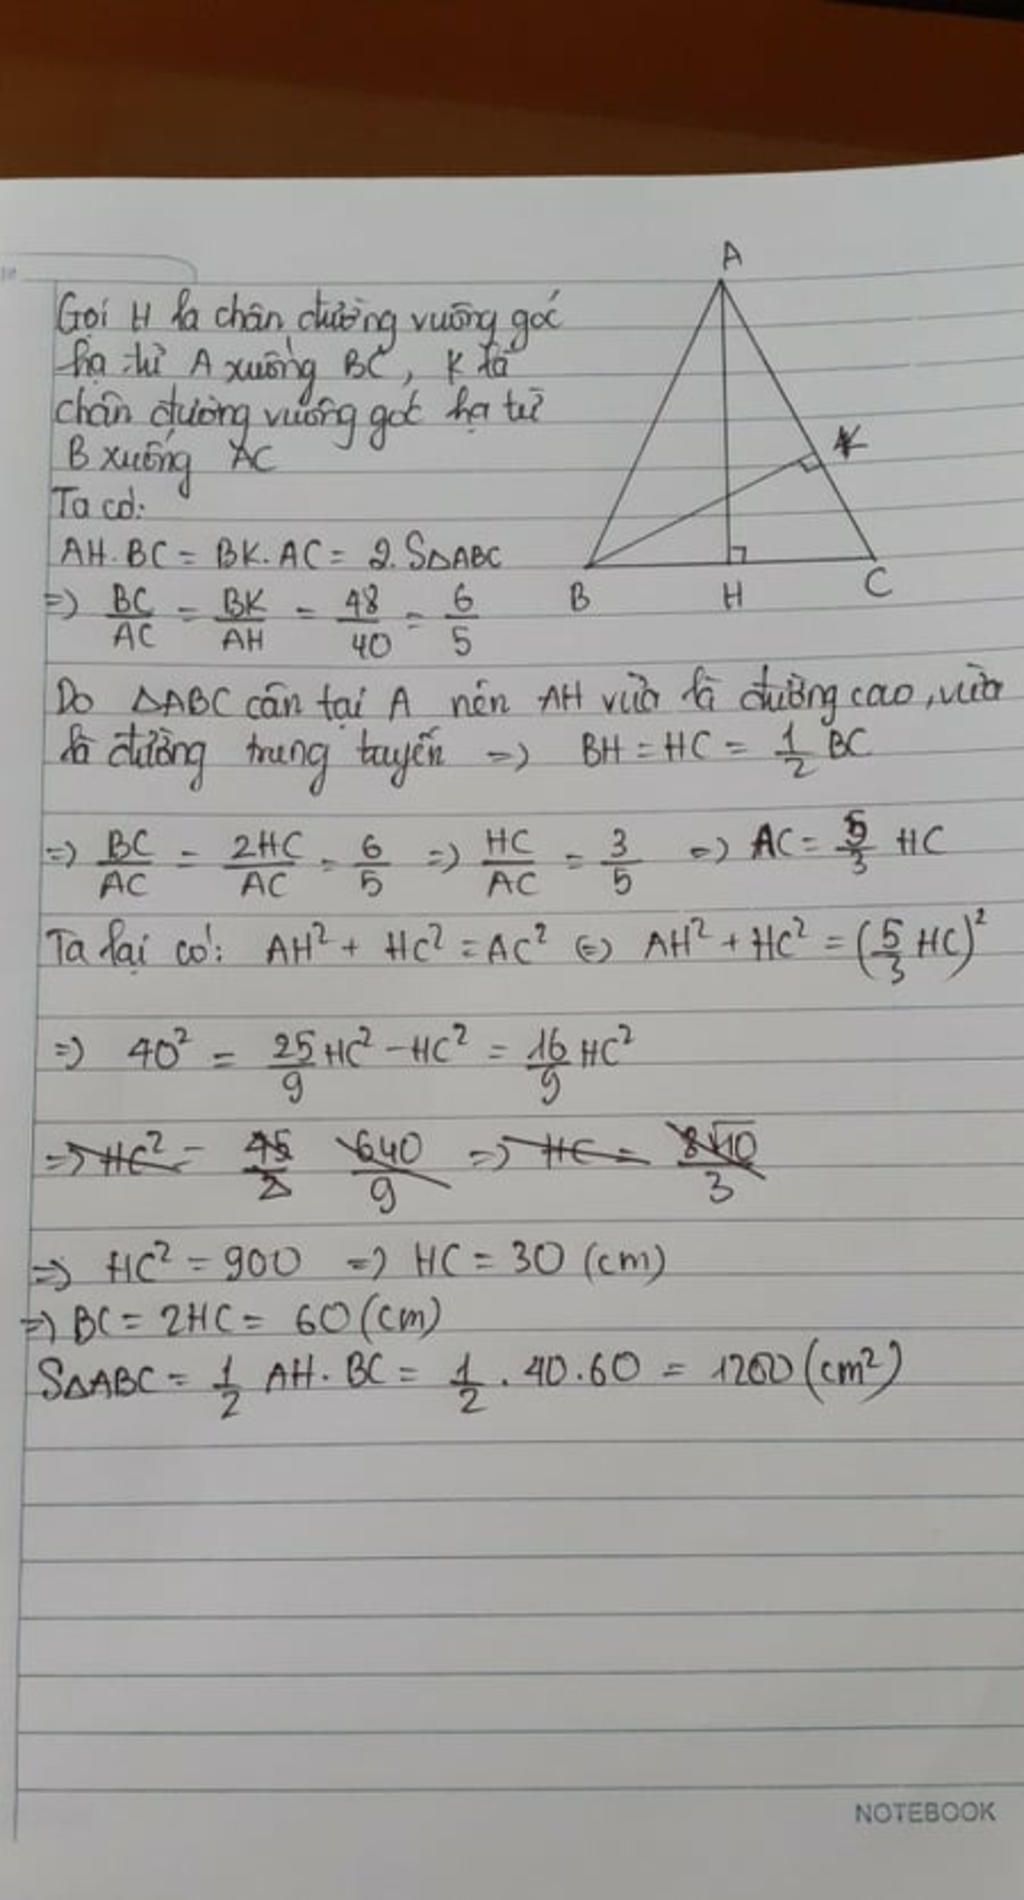 A
Gọi H là chân đường vuông góc
hạ từ A xuống BC, K là
chân đường vuông góc hạ từ
B xuống AC
K
Ta có:
AH.BC = BK.AC = 2.SΔABC
B H C
=> BC/AC = BK/AH = 48/40 = 6/5
Do ΔABC cân tại A nên AH vừa là đường cao, vừa
là đường trung tuyến => BH = HC = 1/2 BC
=> BC/AC = 2HC/AC = 6/5 => HC/AC = 3/5 => AC = 5/3 HC
Ta lại có: AH² + HC² = AC² <=> AH² + HC² = (5/3 HC)²
=> 40² = 25/9 HC² - HC² = 16/9 HC²
=> HC² = 45/2 640/9 => HC = 8√10/3
=> HC² = 900 => HC = 30 (cm)
=> BC = 2HC = 60 (cm)
SΔABC = 1/2 AH.BC = 1/2 . 40.60 = 1200 (cm²)
NOTEBOOK